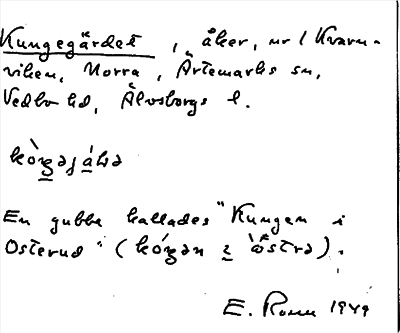 Kungegärdet, åker, nr 1 Kvarn-
viken, Norra, Ärtemarks sn,
Vedbo hd, Älvsborgs l.
En gubbe kallades "Kungen i
Osterud"
E. Rosen 1949